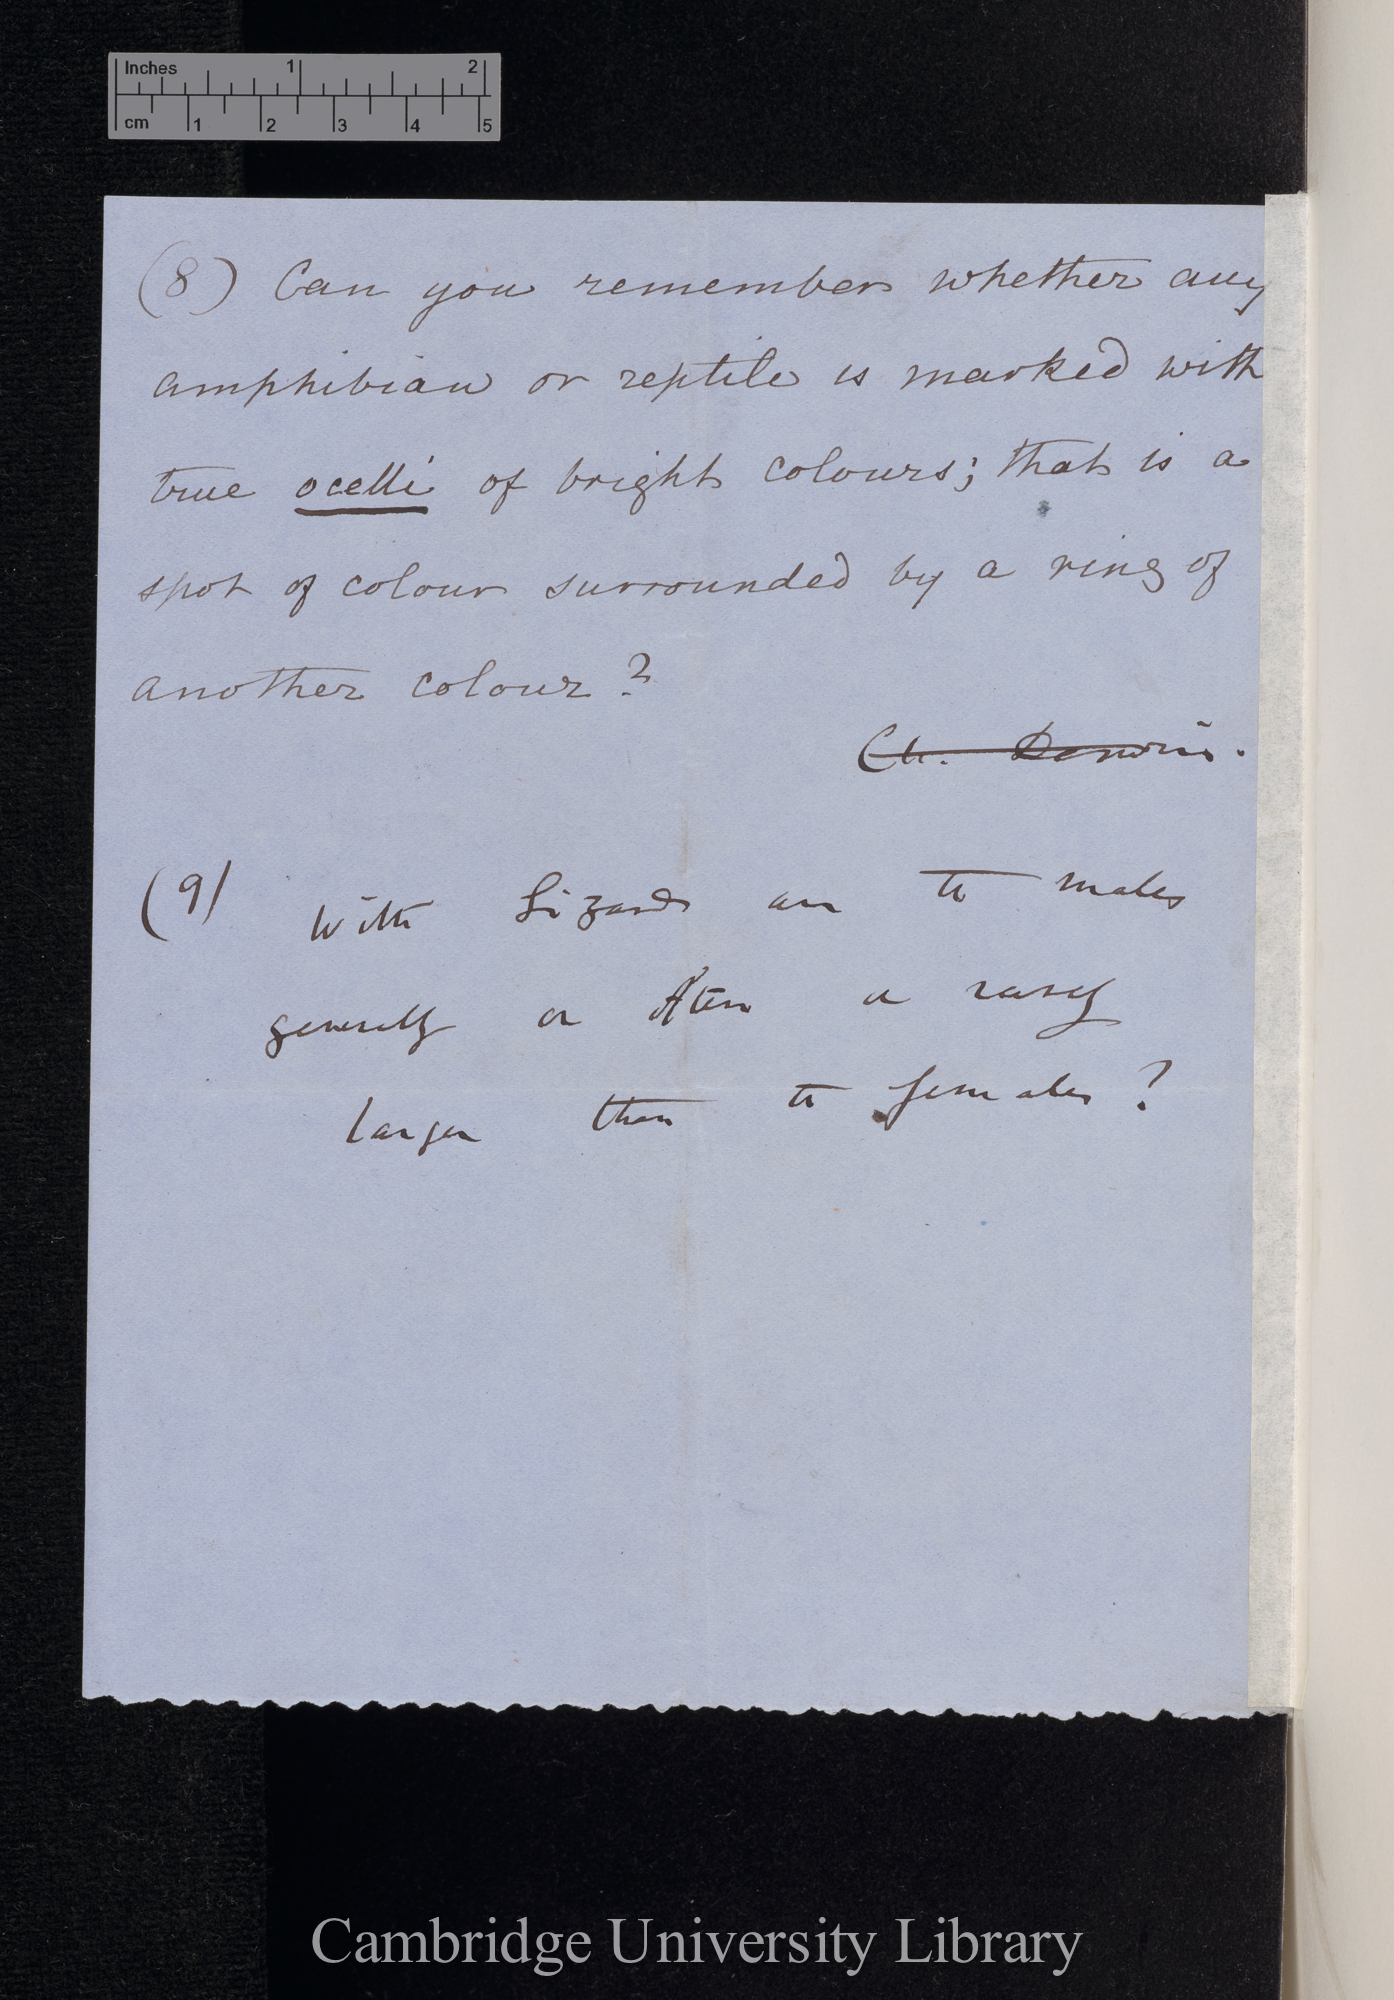 Inches 1 2
cm 1 2 3 4 5
(8) Can you remember whether any
amphibian or reptile is marked with
true ocelli of bright colours; that is a
spot of colour surrounded by a ring of
another colour?
Ch. Darwin.
(9) With Lizards are the males
generally or often or rarely
larger than the females?
Cambridge University Library